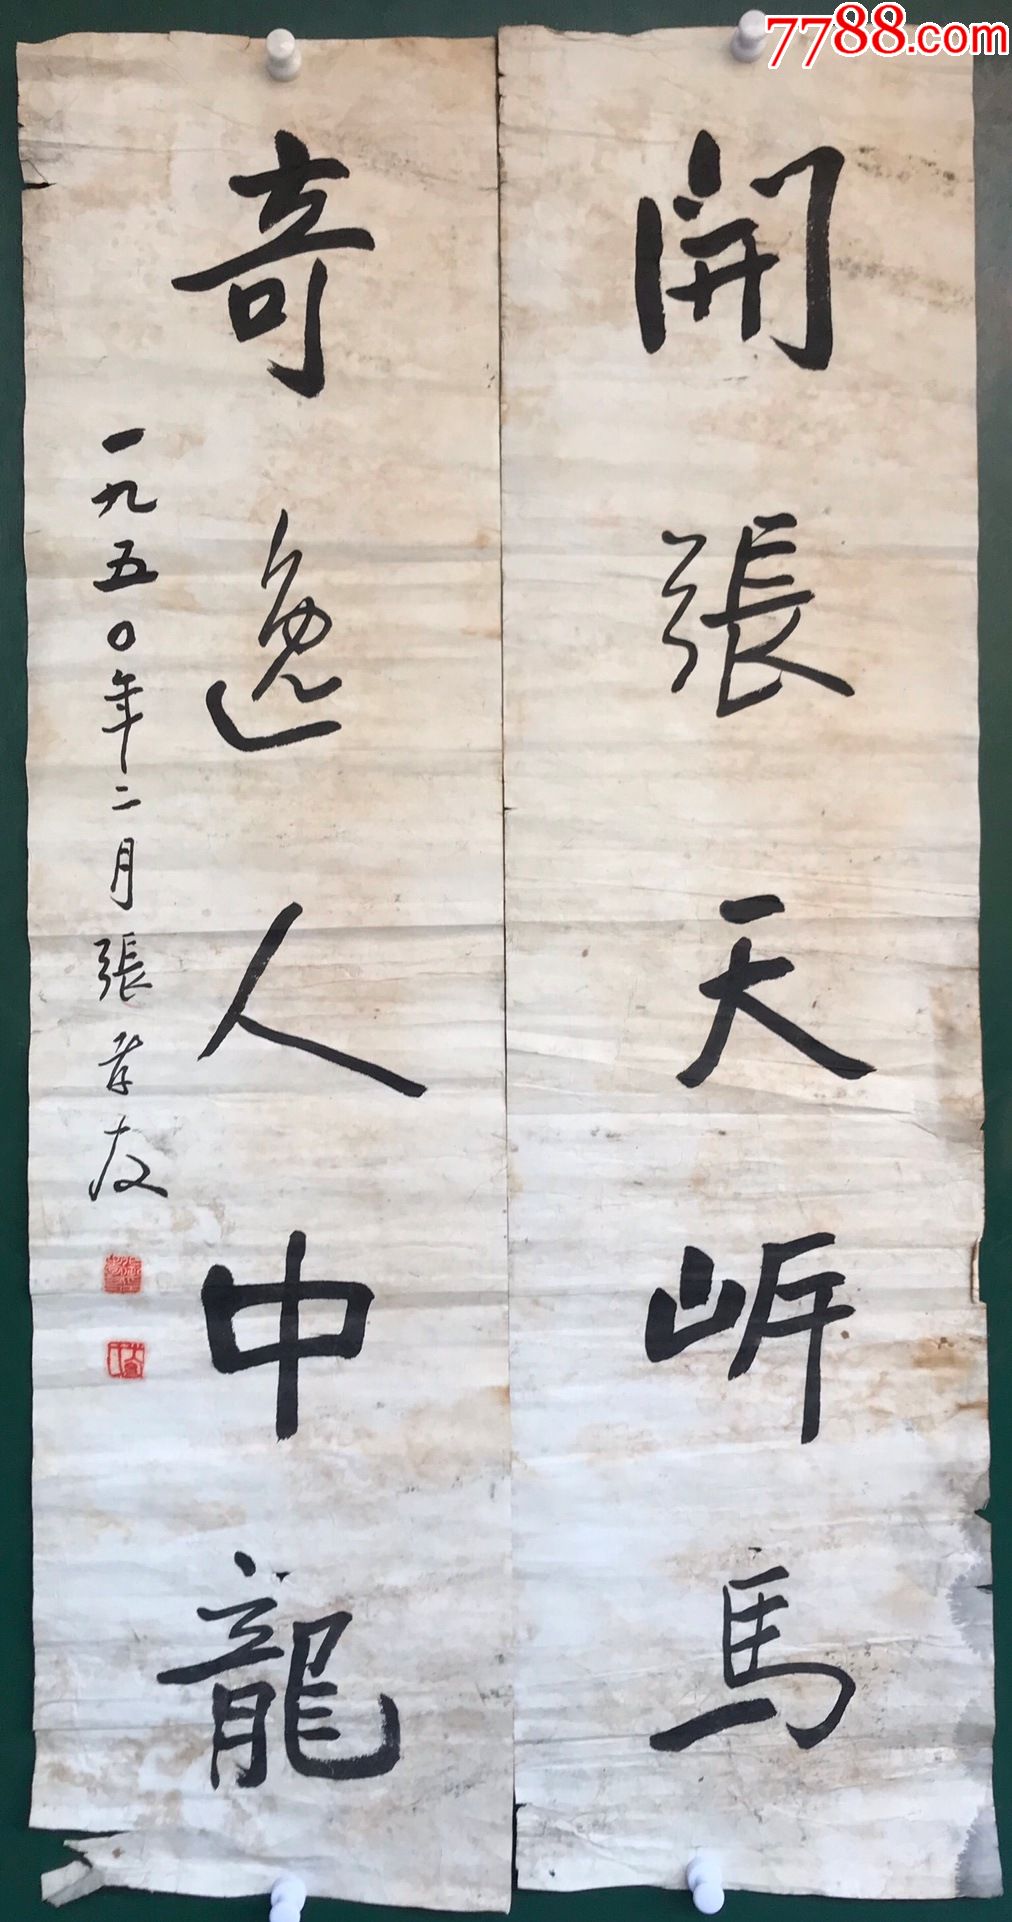 7788.com
開張天岸馬
奇逸人中龍
一九五〇年二月張孝友